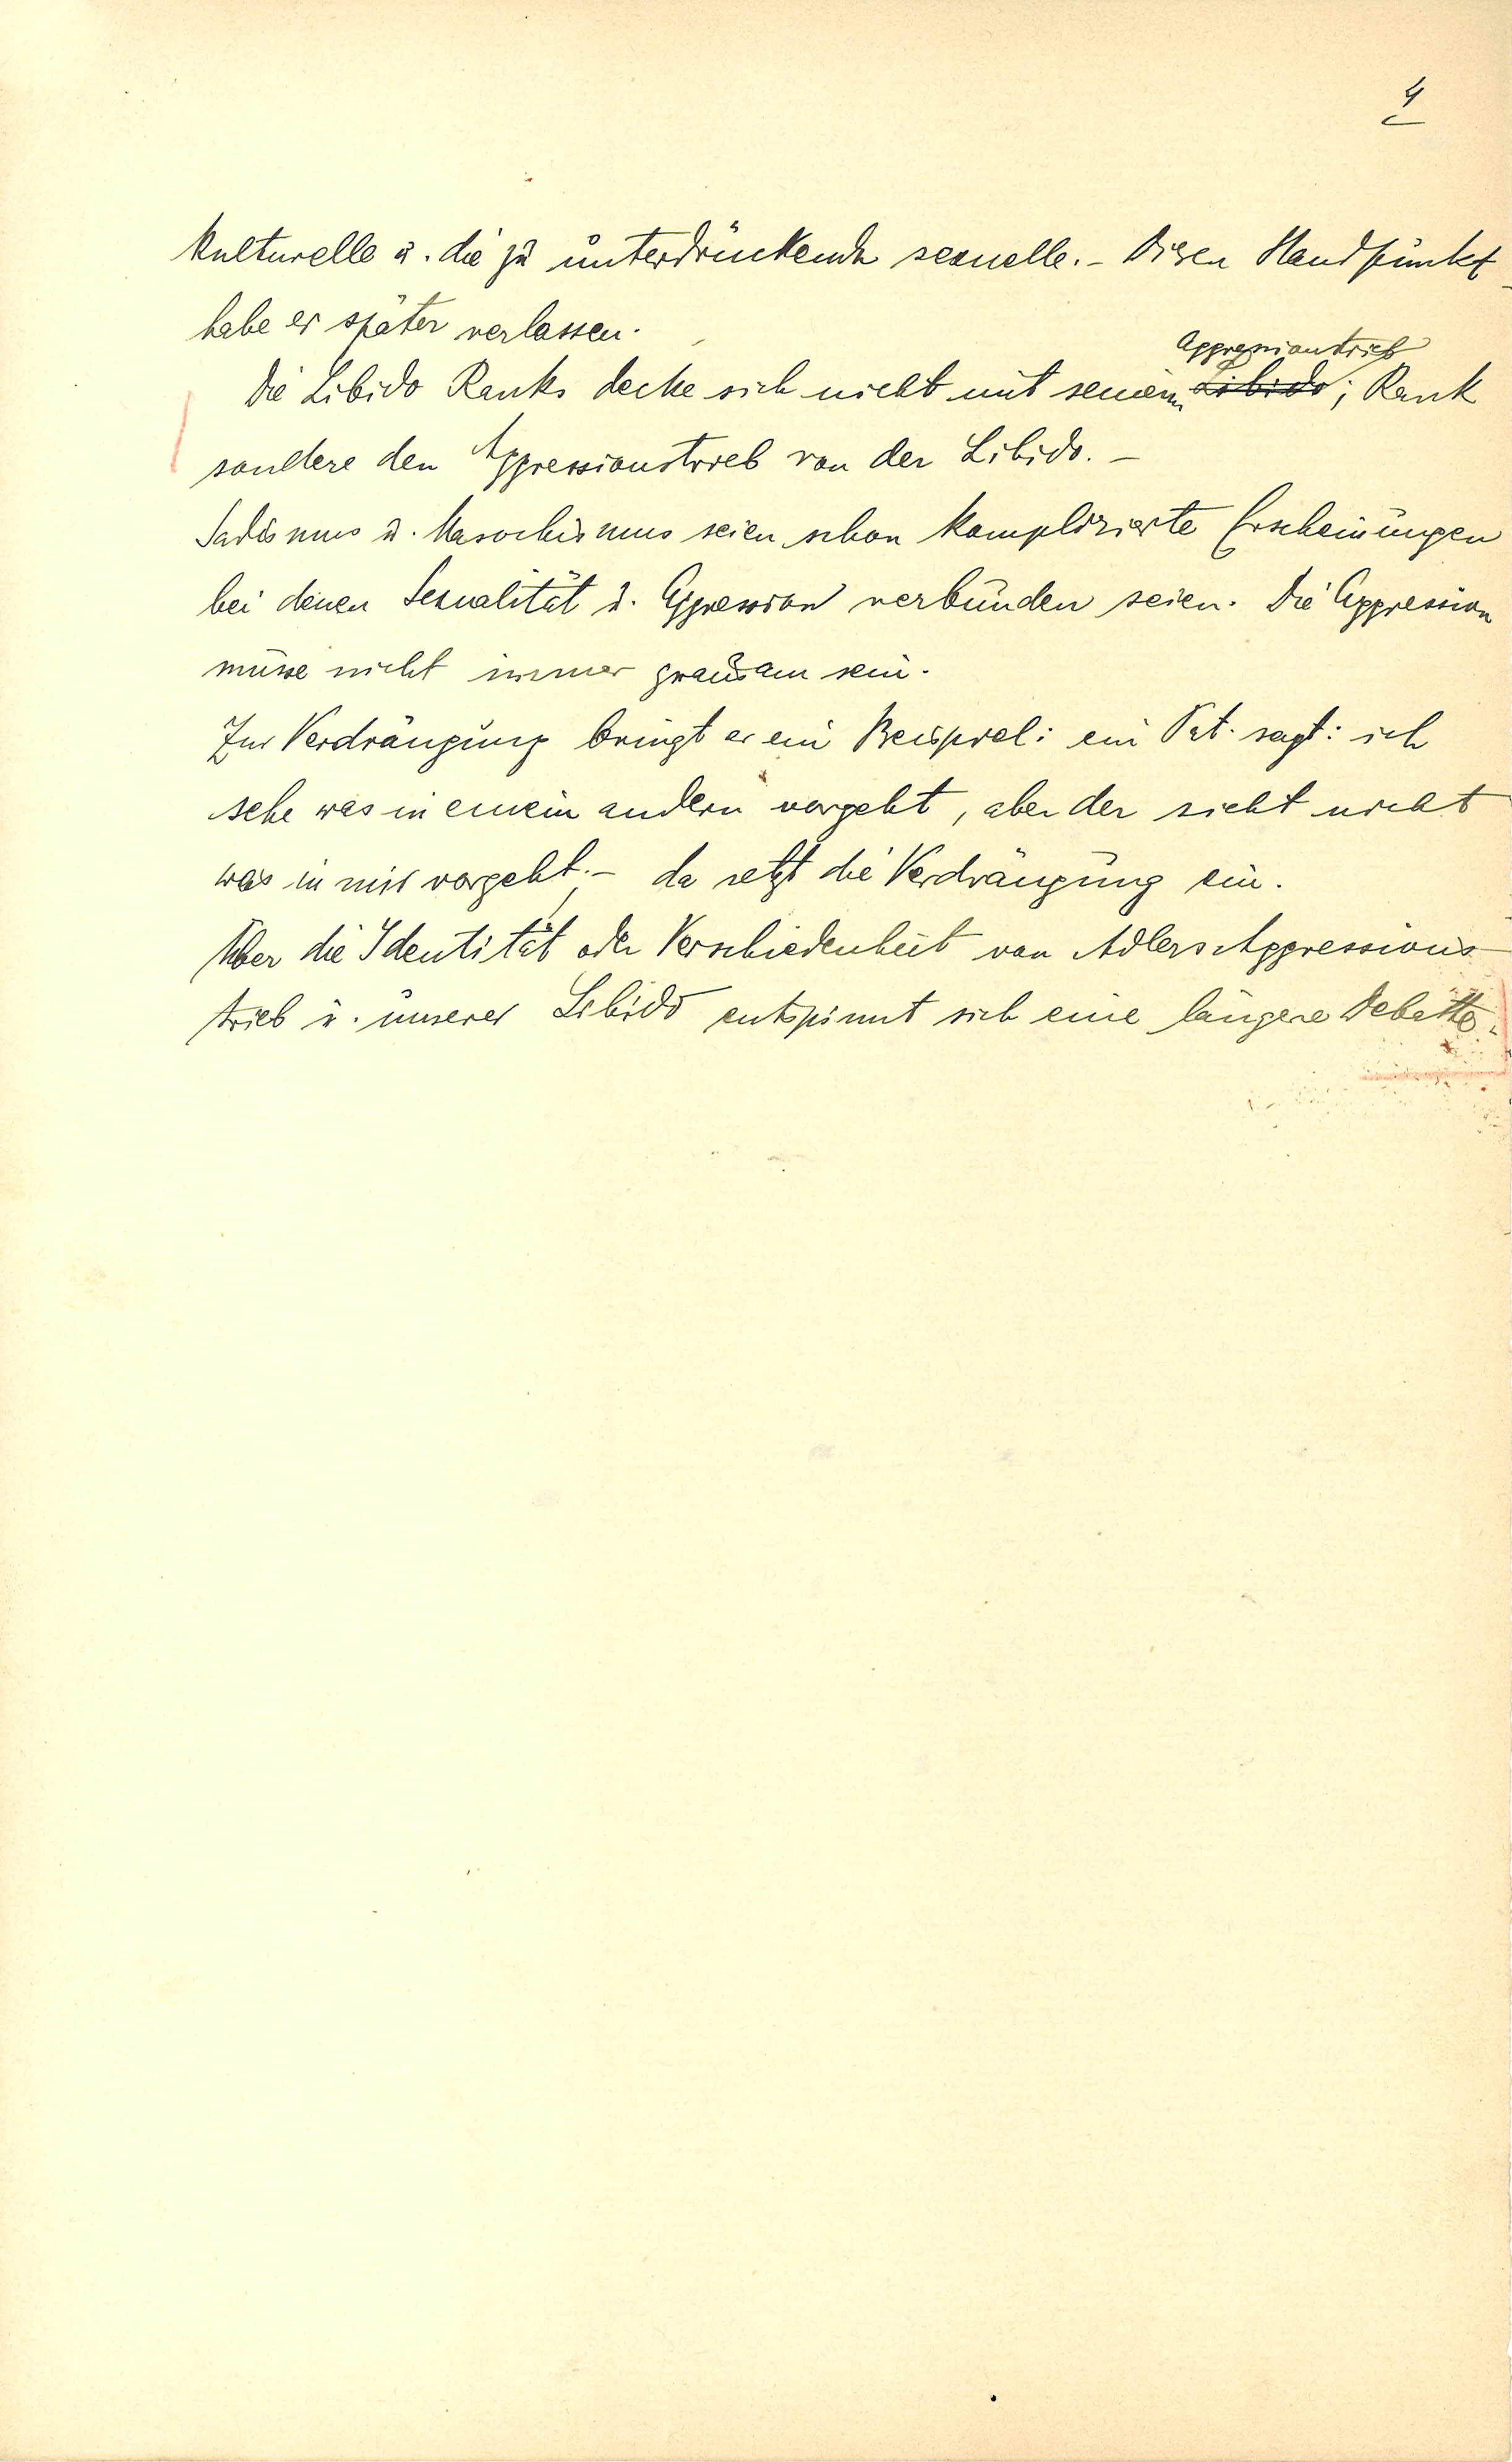 4
kulturelle u. die zu unterdrückende sexuelle. – Diesen Standpunkt
habe er später verlassen.
Aggressiontrieb
Die Libido Ranks decke sich nicht mit seinem Libido; Rank
sondere den Aggressionstrieb von der Libido. –
Sadismus u. Masochismus seien schon komplizierte Erscheinungen
bei denen Sexualität u. Aggression verbunden seien. Die Aggression
müsse nicht immer grausam sein.
Zur Verdrängung bringt er ein Beispiel: ein Pat. sagt: ich
sehe was in einem andern vorgeht, aber der sieht nicht
was in mir vorgeht. – da setzt die Verdrängung ein.
Über die Identität oder Verschiedenheit von Adlers Aggressions-
trieb u. unserer Libido entspinnt sich eine längere Debatte.